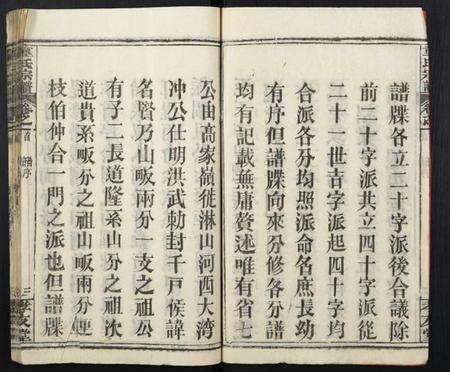 譜牒各立二十字派後合議除
前二十字派共立四十字派從
二十一世吉字派起四十字均
合派各分均照派命名庶長幼
有序但譜牒向來分修各分譜
均有記載無庸贅述唯有省七
公由高家嶺徙淋山河西大灣
冲公仕明洪武勅封千戶侯諱
名督乃山畈兩分一支之祖公
有子二長道隆系山分之祖次
道貴系畈分之祖山畈兩分便
枝伯仲合一門之派也但譜牒
氏宗譜
譜序
三